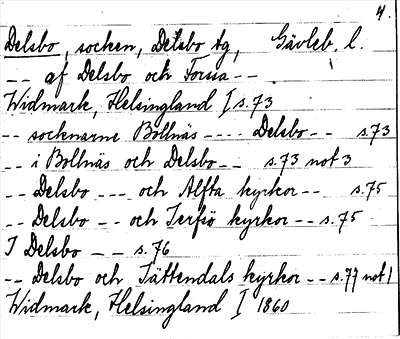 4.
Delsbo, socken, Delsbo tg, Gävleb. l.
-- af Delsbo och Forssa --
Widmark, Helsingland I s. 73
-- socknarne Bollnäs ---- Delsbo -- s. 73
-- i Bollnäs och Delsbo -- s. 73 not 3
-- Delsbo --- och Alfta kyrkor -- s. 75
-- Delsbo -- och Jerfsö kyrkor -- s. 75
I Delsbo -- s. 76
-- Delsbo och Tättendals kyrkor -- s. 77 not 1
Widmark, Helsingland I 1860